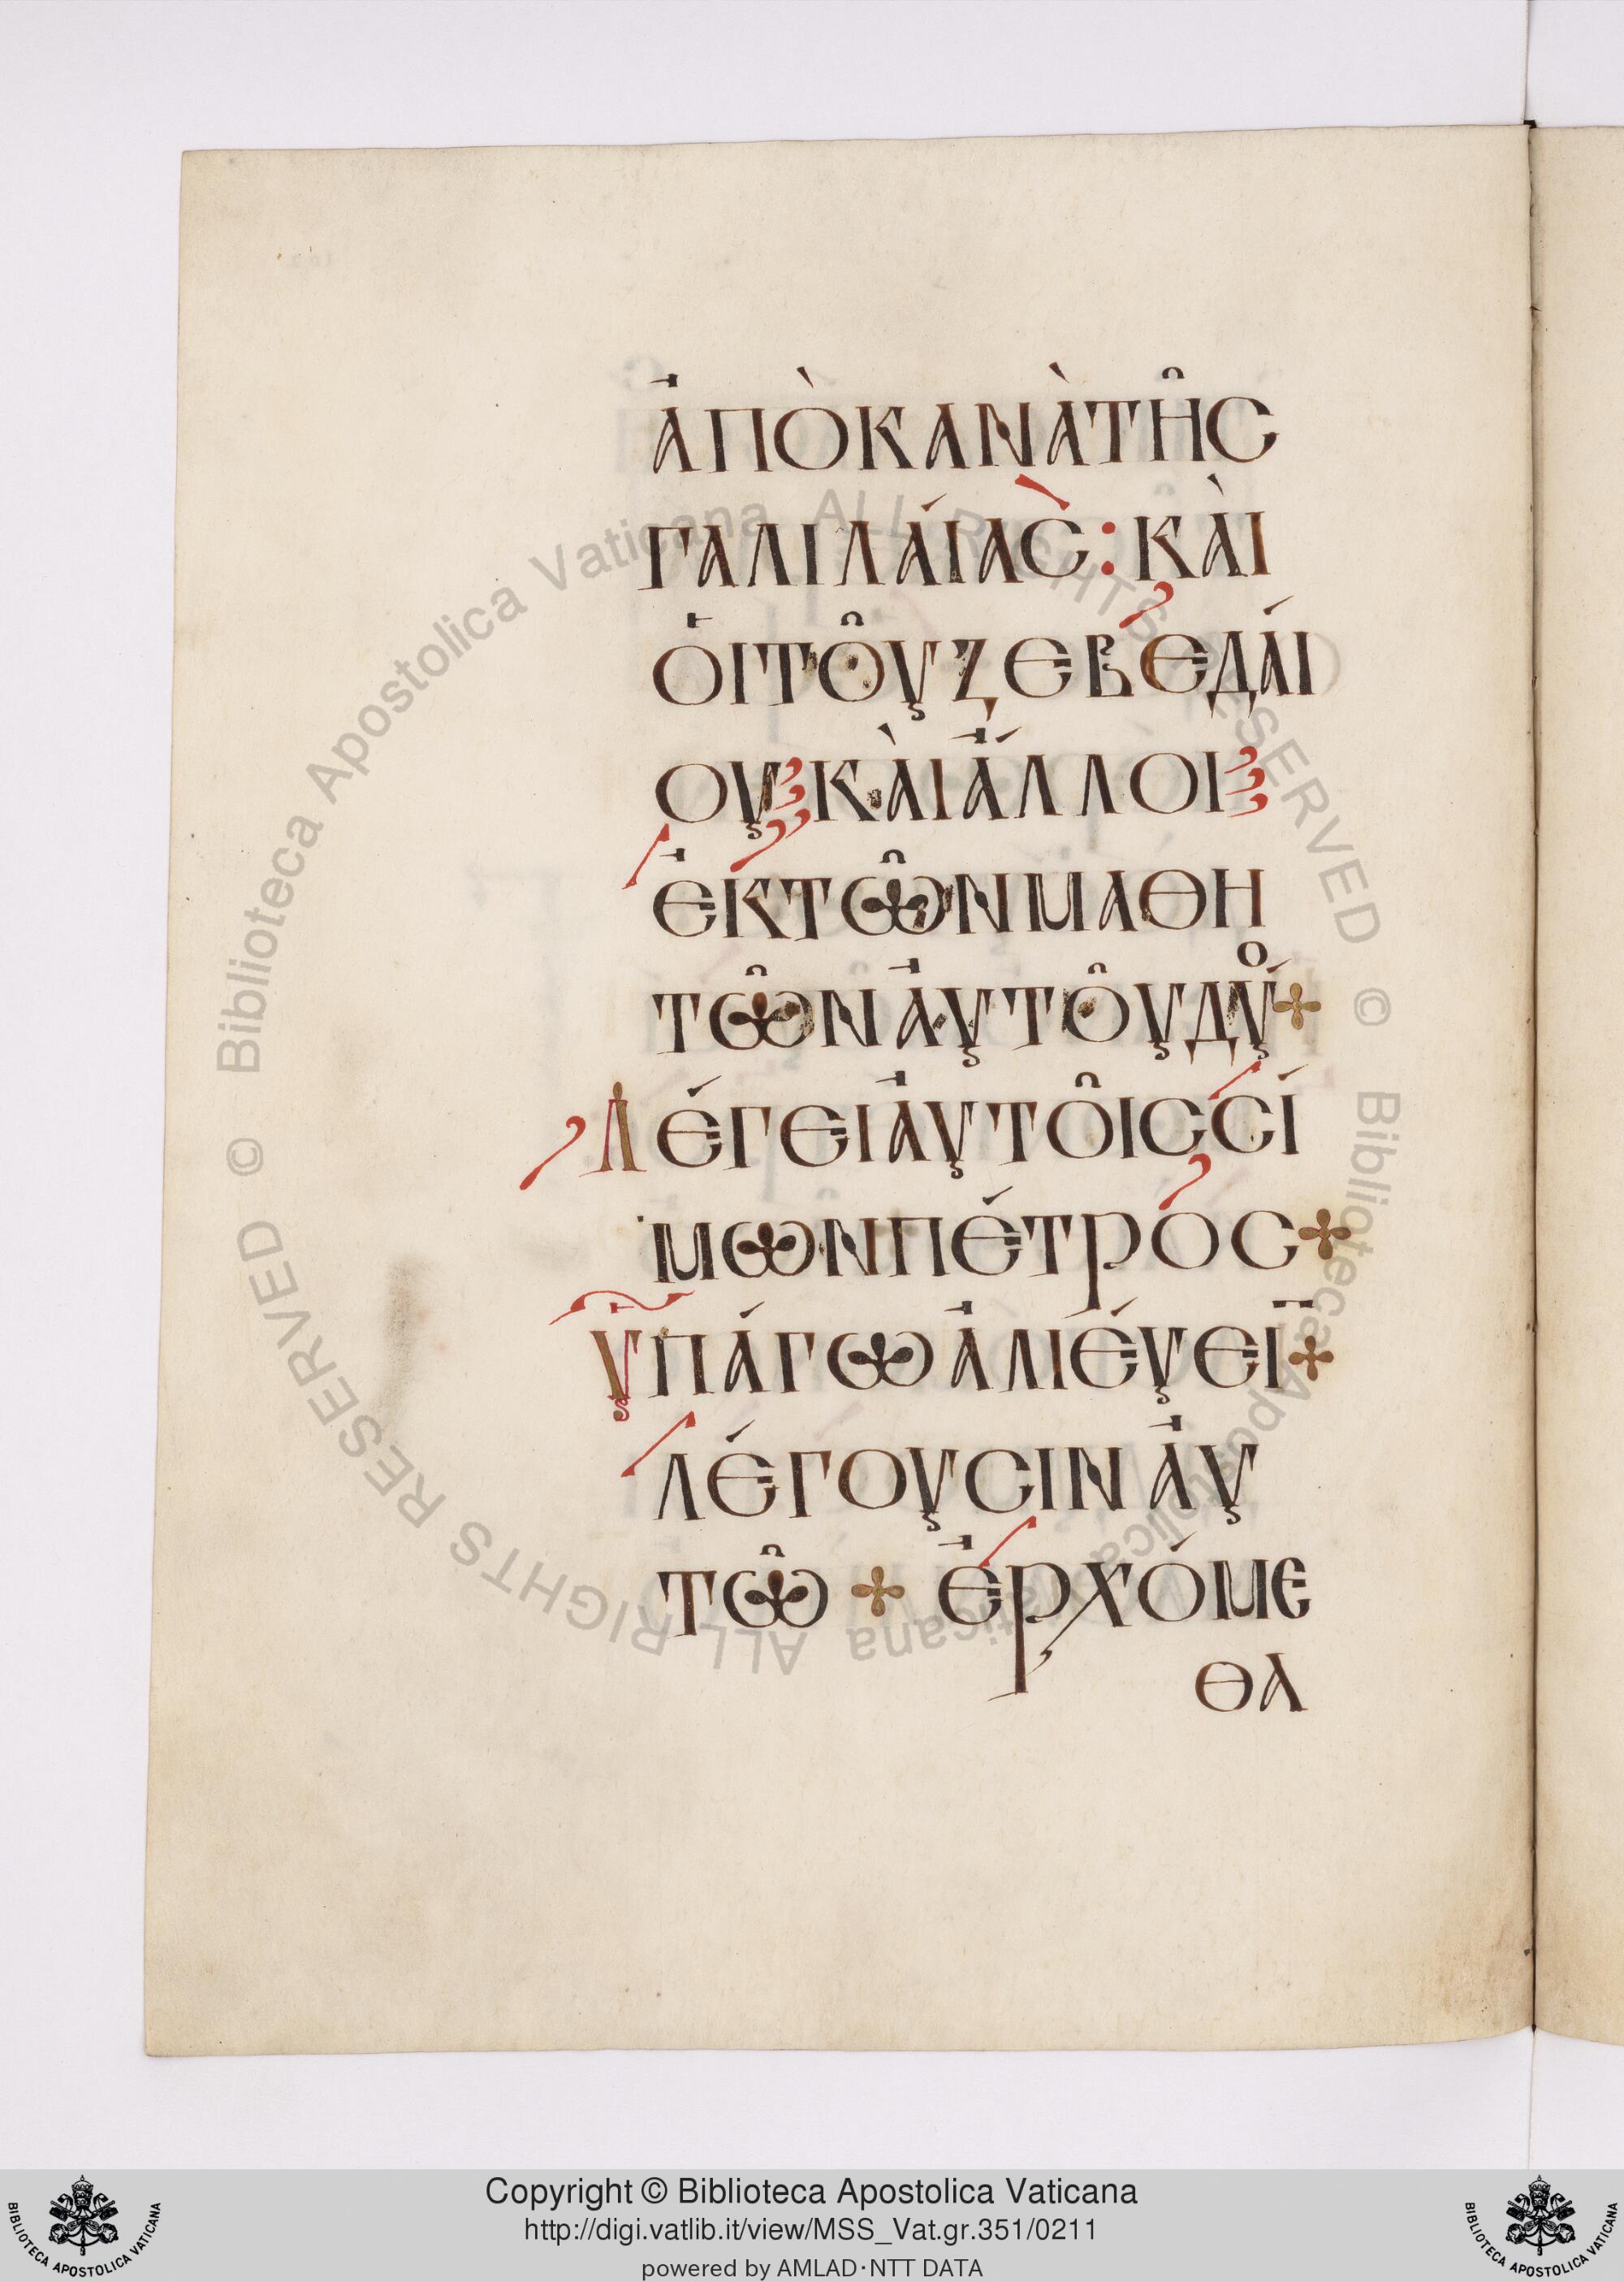 ἀπὸ κανὰ τῆς
γαλιλάιας : κὰι
ὁι τοῦ ζεβεδάι
ου κὰι ἄλλοι
ἐκ τῶν μαθη
τῶν ἀυτοῦ δύο
λέγει ἀυτοῖς σί
μων πέτρος
ὑπάγω ἀλιέυειν
λέγουσιν ἀυ
τῶ ἐρχόμε
θα
© Biblioteca Apostolica Vaticana ALL RIGHTS RESERVED © Biblioteca Apostolica Vaticana ALL RIGHTS RESERVED
Copyright © Biblioteca Apostolica Vaticana
http://digi.vatlib.it/view/MSS_Vat.gr.351/0211
powered by AMLAD·NTT DATA
BIBLIOTECA APOSTOLICA VATICANA
BIBLIOTECA APOSTOLICA VATICANA